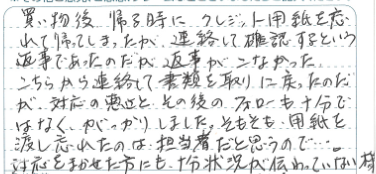 買い物後、帰る時に、クレジット用紙を忘
れて帰ってしまったが、連絡して確認するという
返事であったのだが返事がこなかった。
こちらから連絡して書類を取りに戻ったのだ
が、対応の悪さと、その後のフォローも十分で
はなく、がっかりしました。そもそも、用紙を
渡し忘れたのは担当者だと思うので…。
対応をまかせた方にも、十分状況が伝わっていない様